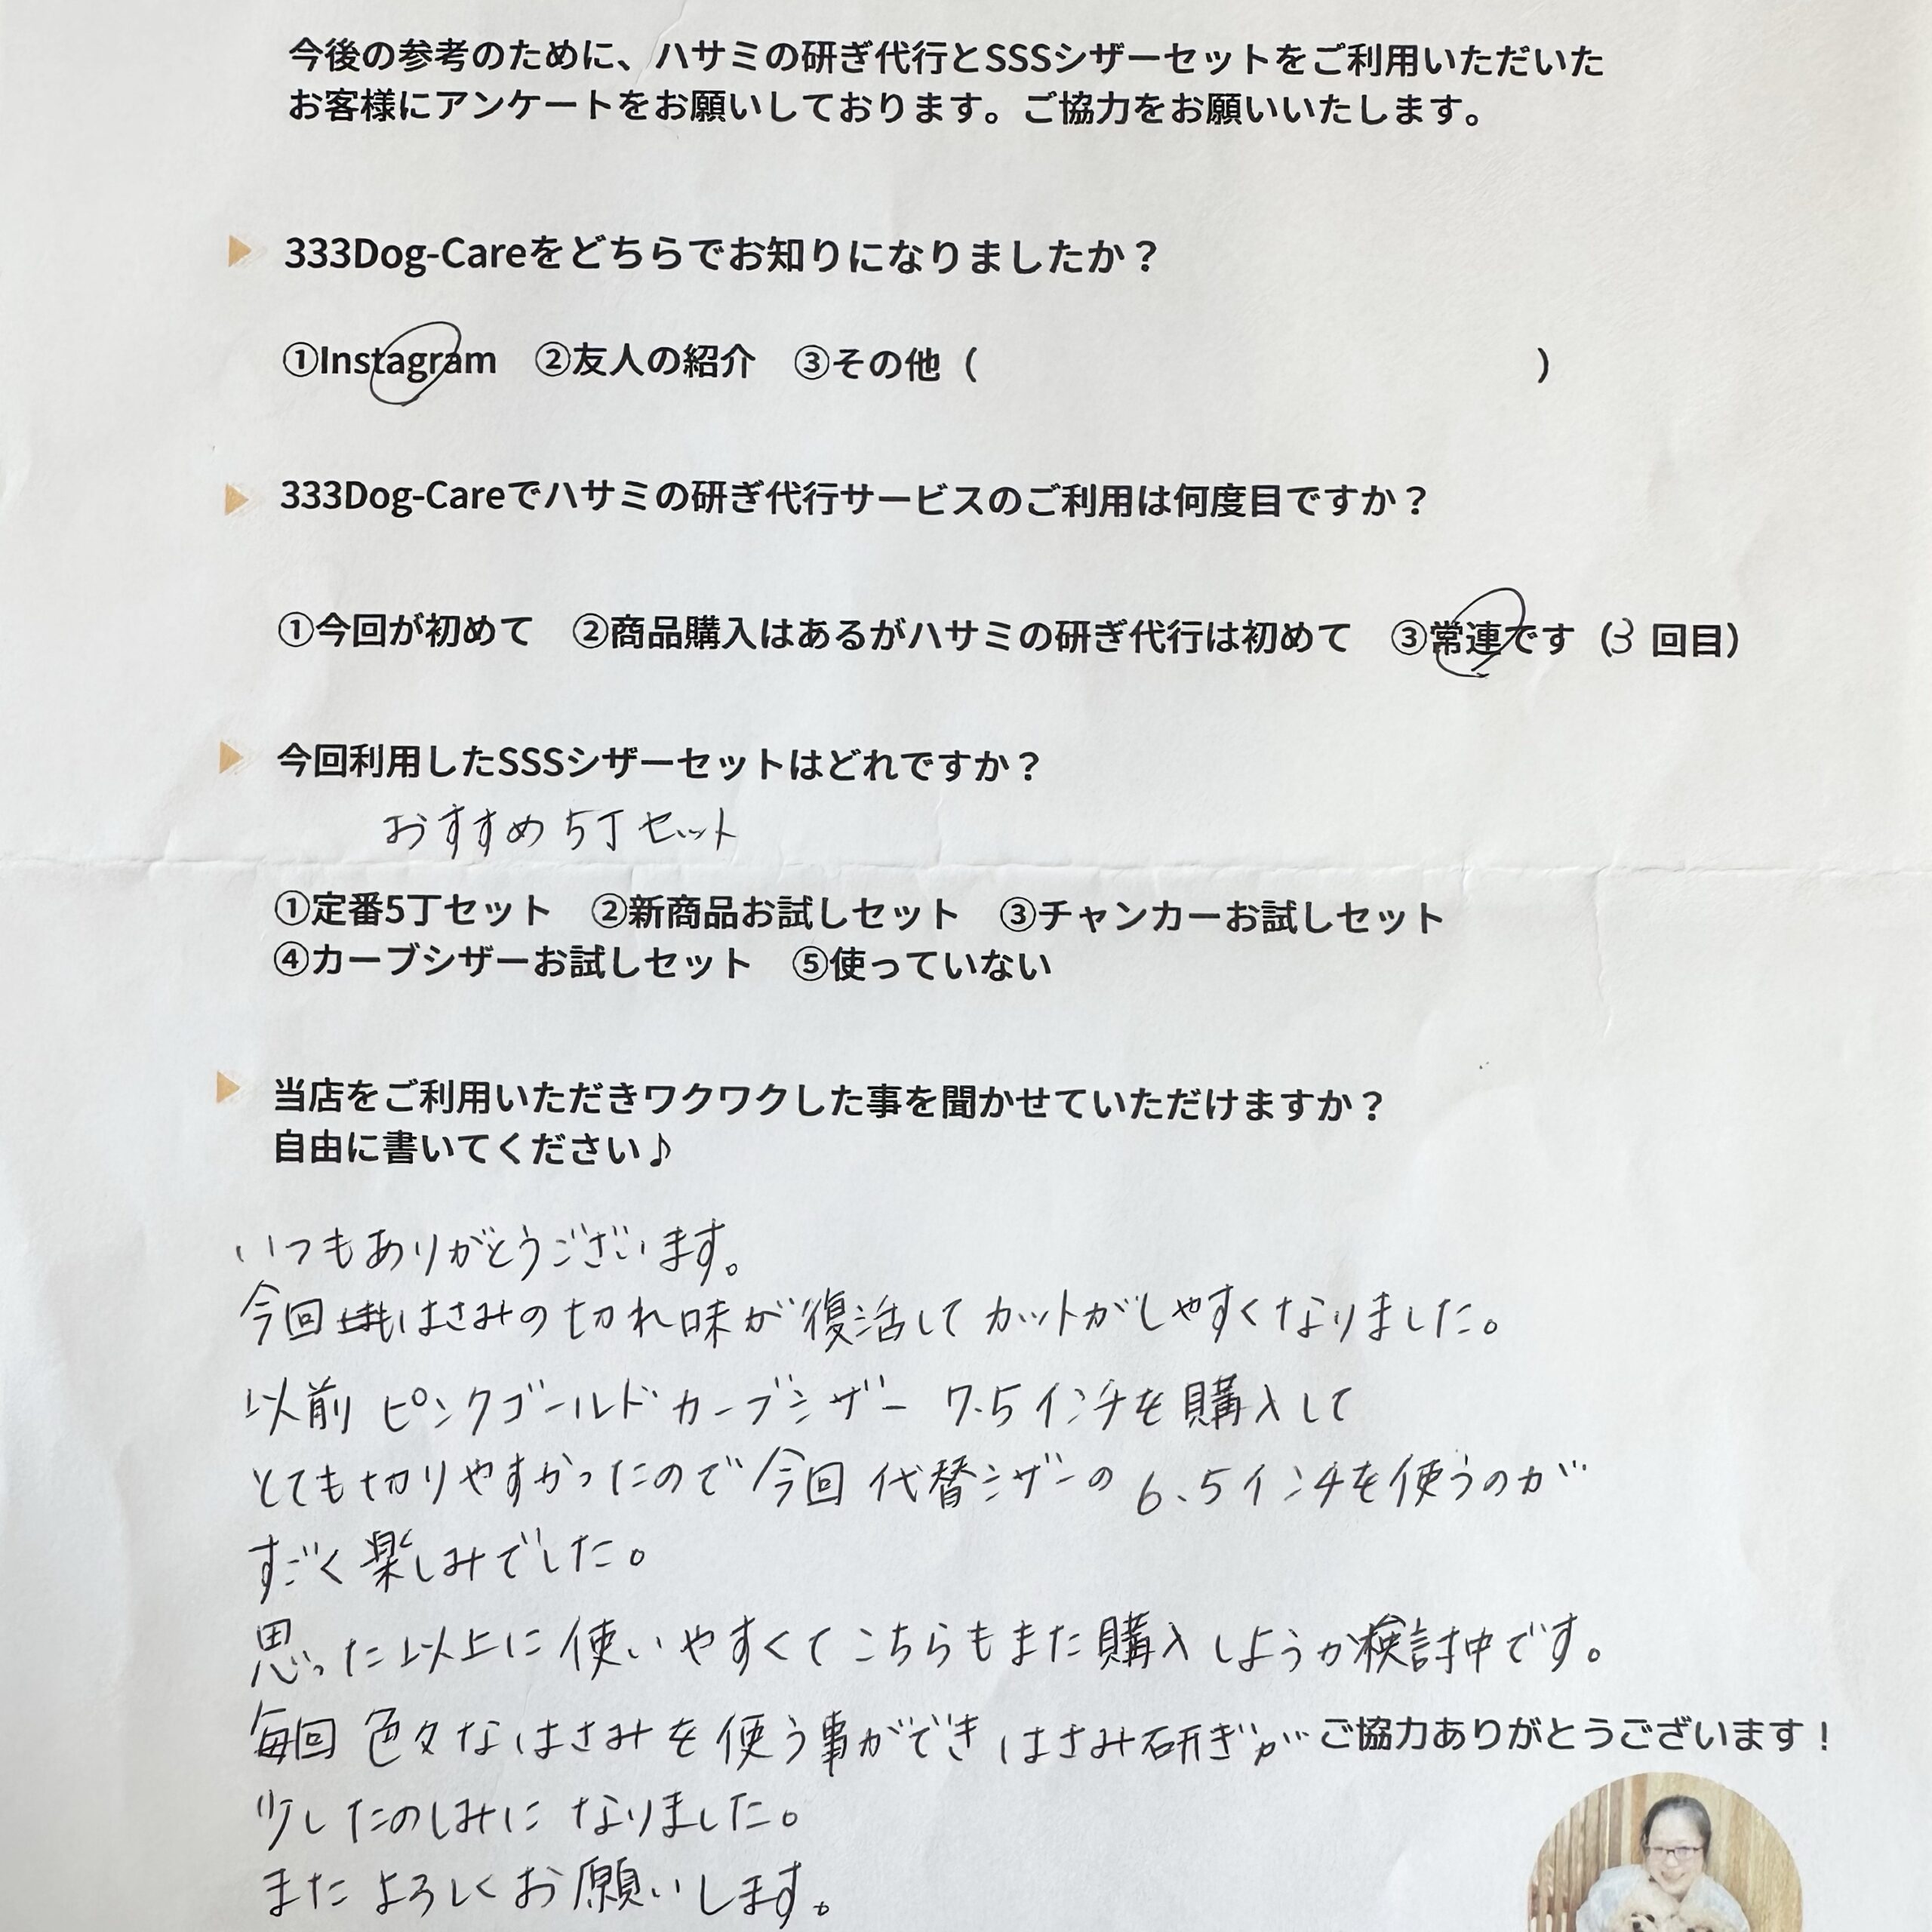 今後の参考のために、ハサミの研ぎ代行とSSSシザーセットをご利用いただいた
お客様にアンケートをお願いしております。ご協力をお願いいたします。
333Dog-Careをどちらでお知りになりましたか？
①Instagram ②友人の紹介 ③その他（ ）
333Dog-Careでハサミの研ぎ代行サービスのご利用は何度目ですか？
①今回が初めて ②商品購入はあるがハサミの研ぎ代行は初めて ③常連です（3 回目）
今回利用したSSSシザーセットはどれですか？
おすすめ 5丁セット
①定番5丁セット ②新商品お試しセット ③チャンカーお試しセット
④カーブシザーお試しセット ⑤使っていない
当店をご利用いただきワクワクした事を聞かせていただけますか？
自由に書いてください♪
いつもありがとうございます。
今回 はさみの切れ味が復活してカットがしやすくなりました。
以前 ピンクゴールドカーブシザー 7.5インチを購入して
とても切りやすかったので今回 代替シザーの 6.5インチを使うのが
すごく楽しみでした。
思った以上に使いやすくてこちらもまた購入しようか検討中です。
毎回 色々なはさみを使う事ができ はさみ研ぎが
少したのしみに なりました。
また よろしくお願いします。
ご協力ありがとうございます！